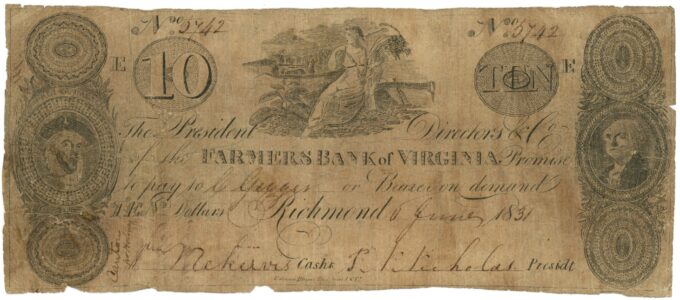 No 5742 No 5742
E 10 TEN E
The President Directors & Co
of the FARMERS BANK of VIRGINIA Promise
to pay to C or Bearer on demand
TEN Dollars Richmond 6 June 1831
Cashr P. Nicholas Presidt